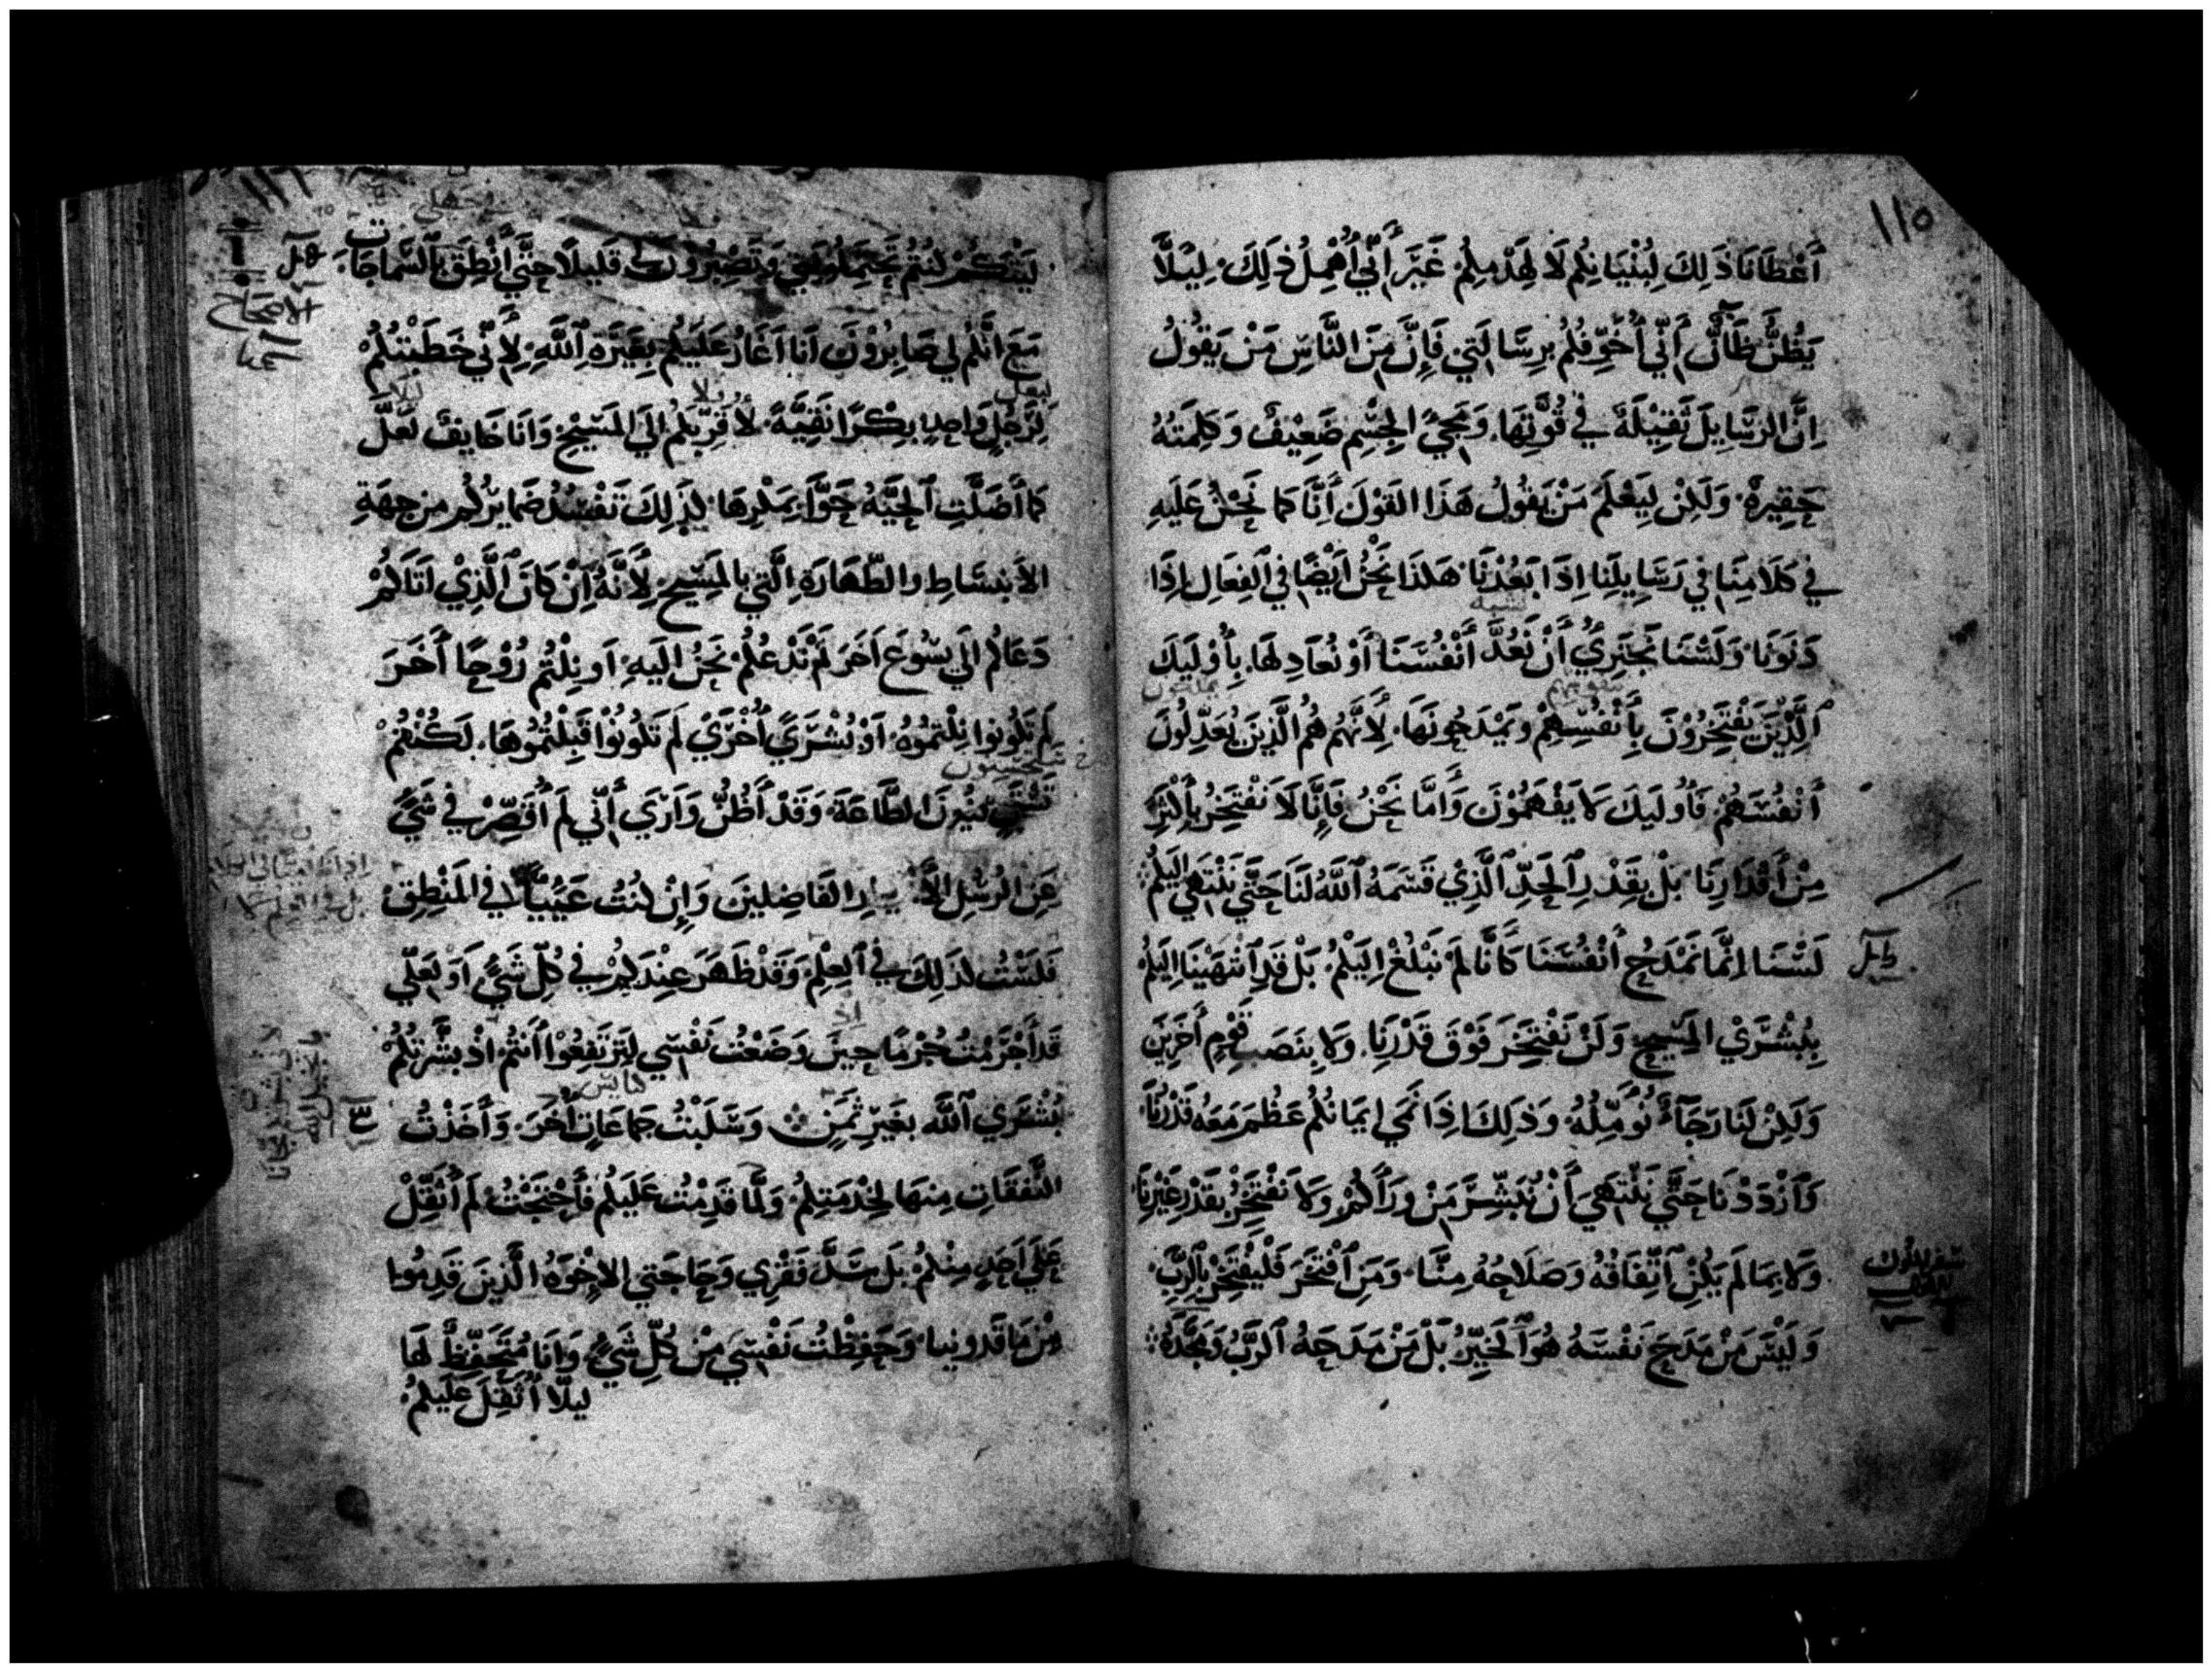 ١١٥
أَعْطَانَا ذَلِكَ لِبُنْيَانِكُم لَا لِهَدْمِكُمْ غَيْرَ أَنِّي أُهْمِلُ ذَلِكَ لِيَلَّا
يَظُنَّ ظَانٌّ أَنِّي أُخَوِّفُكُم بِرِسَالَتِي فَإِنَّ مِنَ النَّاسِ مَنْ يَقُولُ
إِنَّ الرَسَايِلَ ثَقِيْلَةً فِي قُوَّتِهَا. وَمَجِيُّ الجِسْمِ ضَعِيْفٌ وَكَلِمَتَهُ
حَقِيرَةٌ. وَلَكِنْ لِيَعْلَمَ مَنْ يَقُولُ هَذَا القَوْلَ أَنَّا كَمَا نَحْنُ عَلَيْهِ
فِي كَلَامِنَا فِي رَسَايِلِنَا إِذَا بَعُدْنَا هَكَذَا نَحْنُ أَيْضًا فِي الفِعَالِ إِذَا
دَنَوْنَا. وَلَسْنَا نَجْتَرِيُ أَنْ نَعُدَّ أَنْفُسَنَا أَوْ نُعَادِلَهَا. بِأُوْلَيِكَ
الَّذِيْنَ يَفْتَخِرُوْنَ بِأَنْفُسِهِمْ وَيَمْدَحُونَهَا. لِأَنَّهُم هُمُ الَّذِينَ يُعَدِّلُونَ
أَنْفُسَهُمْ فَأُولَيِكَ لَا يَفْهَمُوْنَ وَأَمَّا نَحْنُ فَإِنَّا لَا نَفْتَخِرُ بِأَكْثَرِ
مِنْ أَقْدَارِنَا. بَلْ بِقَدْرِ الحَدِّ الَّذِيْ قَسَمَهُ اللَّهُ لَنَا حَتَّى نَنْتَهِي إِلَيكُمْ
لَسْنَا إِنَّمَا نَمْدَحُ أَنْفُسَنَا كَأَنَّا لَمْ نَبْلُغْ إِلَيْكُمْ بَلْ قَدِ انْتَهَيْنَا إِلَيكُمْ
بِبُشْرَيْ المَسِيْحِ وَلَنْ نَفْتَخِرَ فَوْقَ قَدْرِنَا. وَلَا بِنَصَبِ قَوْمٍ أَخَرِينَ
وَلَكِنْ لَنَا رَجَآءٌ نُؤَمِّلُهُ وَذَلِكَ إِذَا نَمَي إِيمَانُكُم عَظُمَ مَعَهُ قَدْرُنَا
وَازْدَدْنَا حَتَّى نَنْتَهِي أَنْ نُبَشِّرَ مَنْ وَرَأَكُمْ وَلَا نَفْتَخِرُ بِقَدْرِ غَيْرِنَا
وَلَا بِمَا لَم يَكُنِ اتِّفَاقُهُ وَصَلَاحُهُ مِنَّا. وَمَنِ افْتَخَرَ فَلْيَفْتَخِرْ بِالرَّبِّ.
وَلَيْسَ مَنْ مَدَحَ نَفْسَهُ هُوَ الخَيِّرُ بَلْ مَنْ مَدَحَهُ الرَّبُّ وَمَجَّدَهُ
١١٦
لَيْتَكُمْ كُنْتُمْ تَحْتَمِلُونِي وَتَصْبِرُونَ قَلِيلًا حَتَّى أَنْطِقَ بِالسَّمَاجَاتِ
الاصحاح
مَعَ أَنَّكُم لِي صَابِرُوْنَ أَنَا أَغَارُ عَلَيكُم بِغَيْرَةِ اللَّهِ لِأَنِّي خَطَبْتُكُمْ
لِرَجُلٍ وَاحِدٍ بِكْرًا نَقِيَّةً لِأُقَرِّبَكُم إِلَى المَسِيْحِ وَأَنَا خَايِفٌ لَعَلَّ
كَمَا أَضَلَّتِ الحَيَّةُ حَوَّآ بِمَكْرِهَا كَذَلِكَ تَفْسُدُ ضَمَايِرُكُم مِن جِهَةِ
الأَنبِسَاطِ وَالطَّهَارَةِ الَّتِي بِالمَسِيحِ لِأَنَّهُ إِنْ كَانَ الَّذِيْ أَتَاكُمْ
دَعَاكُم إِلَى يَسُوعَ أَخَرَ لَمْ نَدْعُكُم نَحْنُ إِلَيهِ أَو نِلْتُم رُوْحًا أَخَرَ
لَم تَكُونُوا نِلْتُمُوهُ أَوْ بُشْرَيً أُخْرَيْ لَم تَكُونُوْا قَبِلْتُمُوهَا. لَكُنْتُمْ
الطَّاعَةَ وَقَدْ أَظُنُّ وَأَرَي أَنِّي لَم أُقَصِّرْ فِي شَيٍّ
عَنِ الرُسُلِ الفَاضِلِينَ وَإِنْ كُنْتُ عَيِيًّا فِي المَنْطِقِ
فَلَسْتُ كَذَلِكَ فِي العِلْمِ وَقَدْ ظَهَرَ عِنْدَكُمْ فِي كُلِّ شَيٍّ أَوَ لَعَلِّي
قَد أَجْرَمْتُ جُرْمًا حِينَ وَضَعْتُ نَفْسِي لِتَرْتَفِعُوْا أَنتُمْ إِذْ بَشَّرْتُكُمْ
بُشْرَي اللَّه بِغَيْرِ ثَمَنٍ وَسَلَبْتُ جَمَاعَاتٍ أُخَرَ. وَأَخَذْتُ
النَّفَقَاتِ مِنهَا لِخِدْمَتِكُمْ وَلَمَّا قَدِمْتُ عَلَيكُم فَأَحْتَجْتُ لَم أُثَقِّلْ
عَلَي أَحَدٍ مِنْكُمْ بَل سَدَّ فَقْرِي وَحَاجَتِي الإِخْوَةُ الَّذِينَ قَدِمُوا
مِنْ مَاقَدُونِيا. وَحَفِظْتُ نَفْسِي مِنْ كُلِّ شَيٍّ وَأَنَا مُتَحَفِّظٌ لَهَا
لِيَلَّا أُثَقِّلَ عَلَيكُمْ